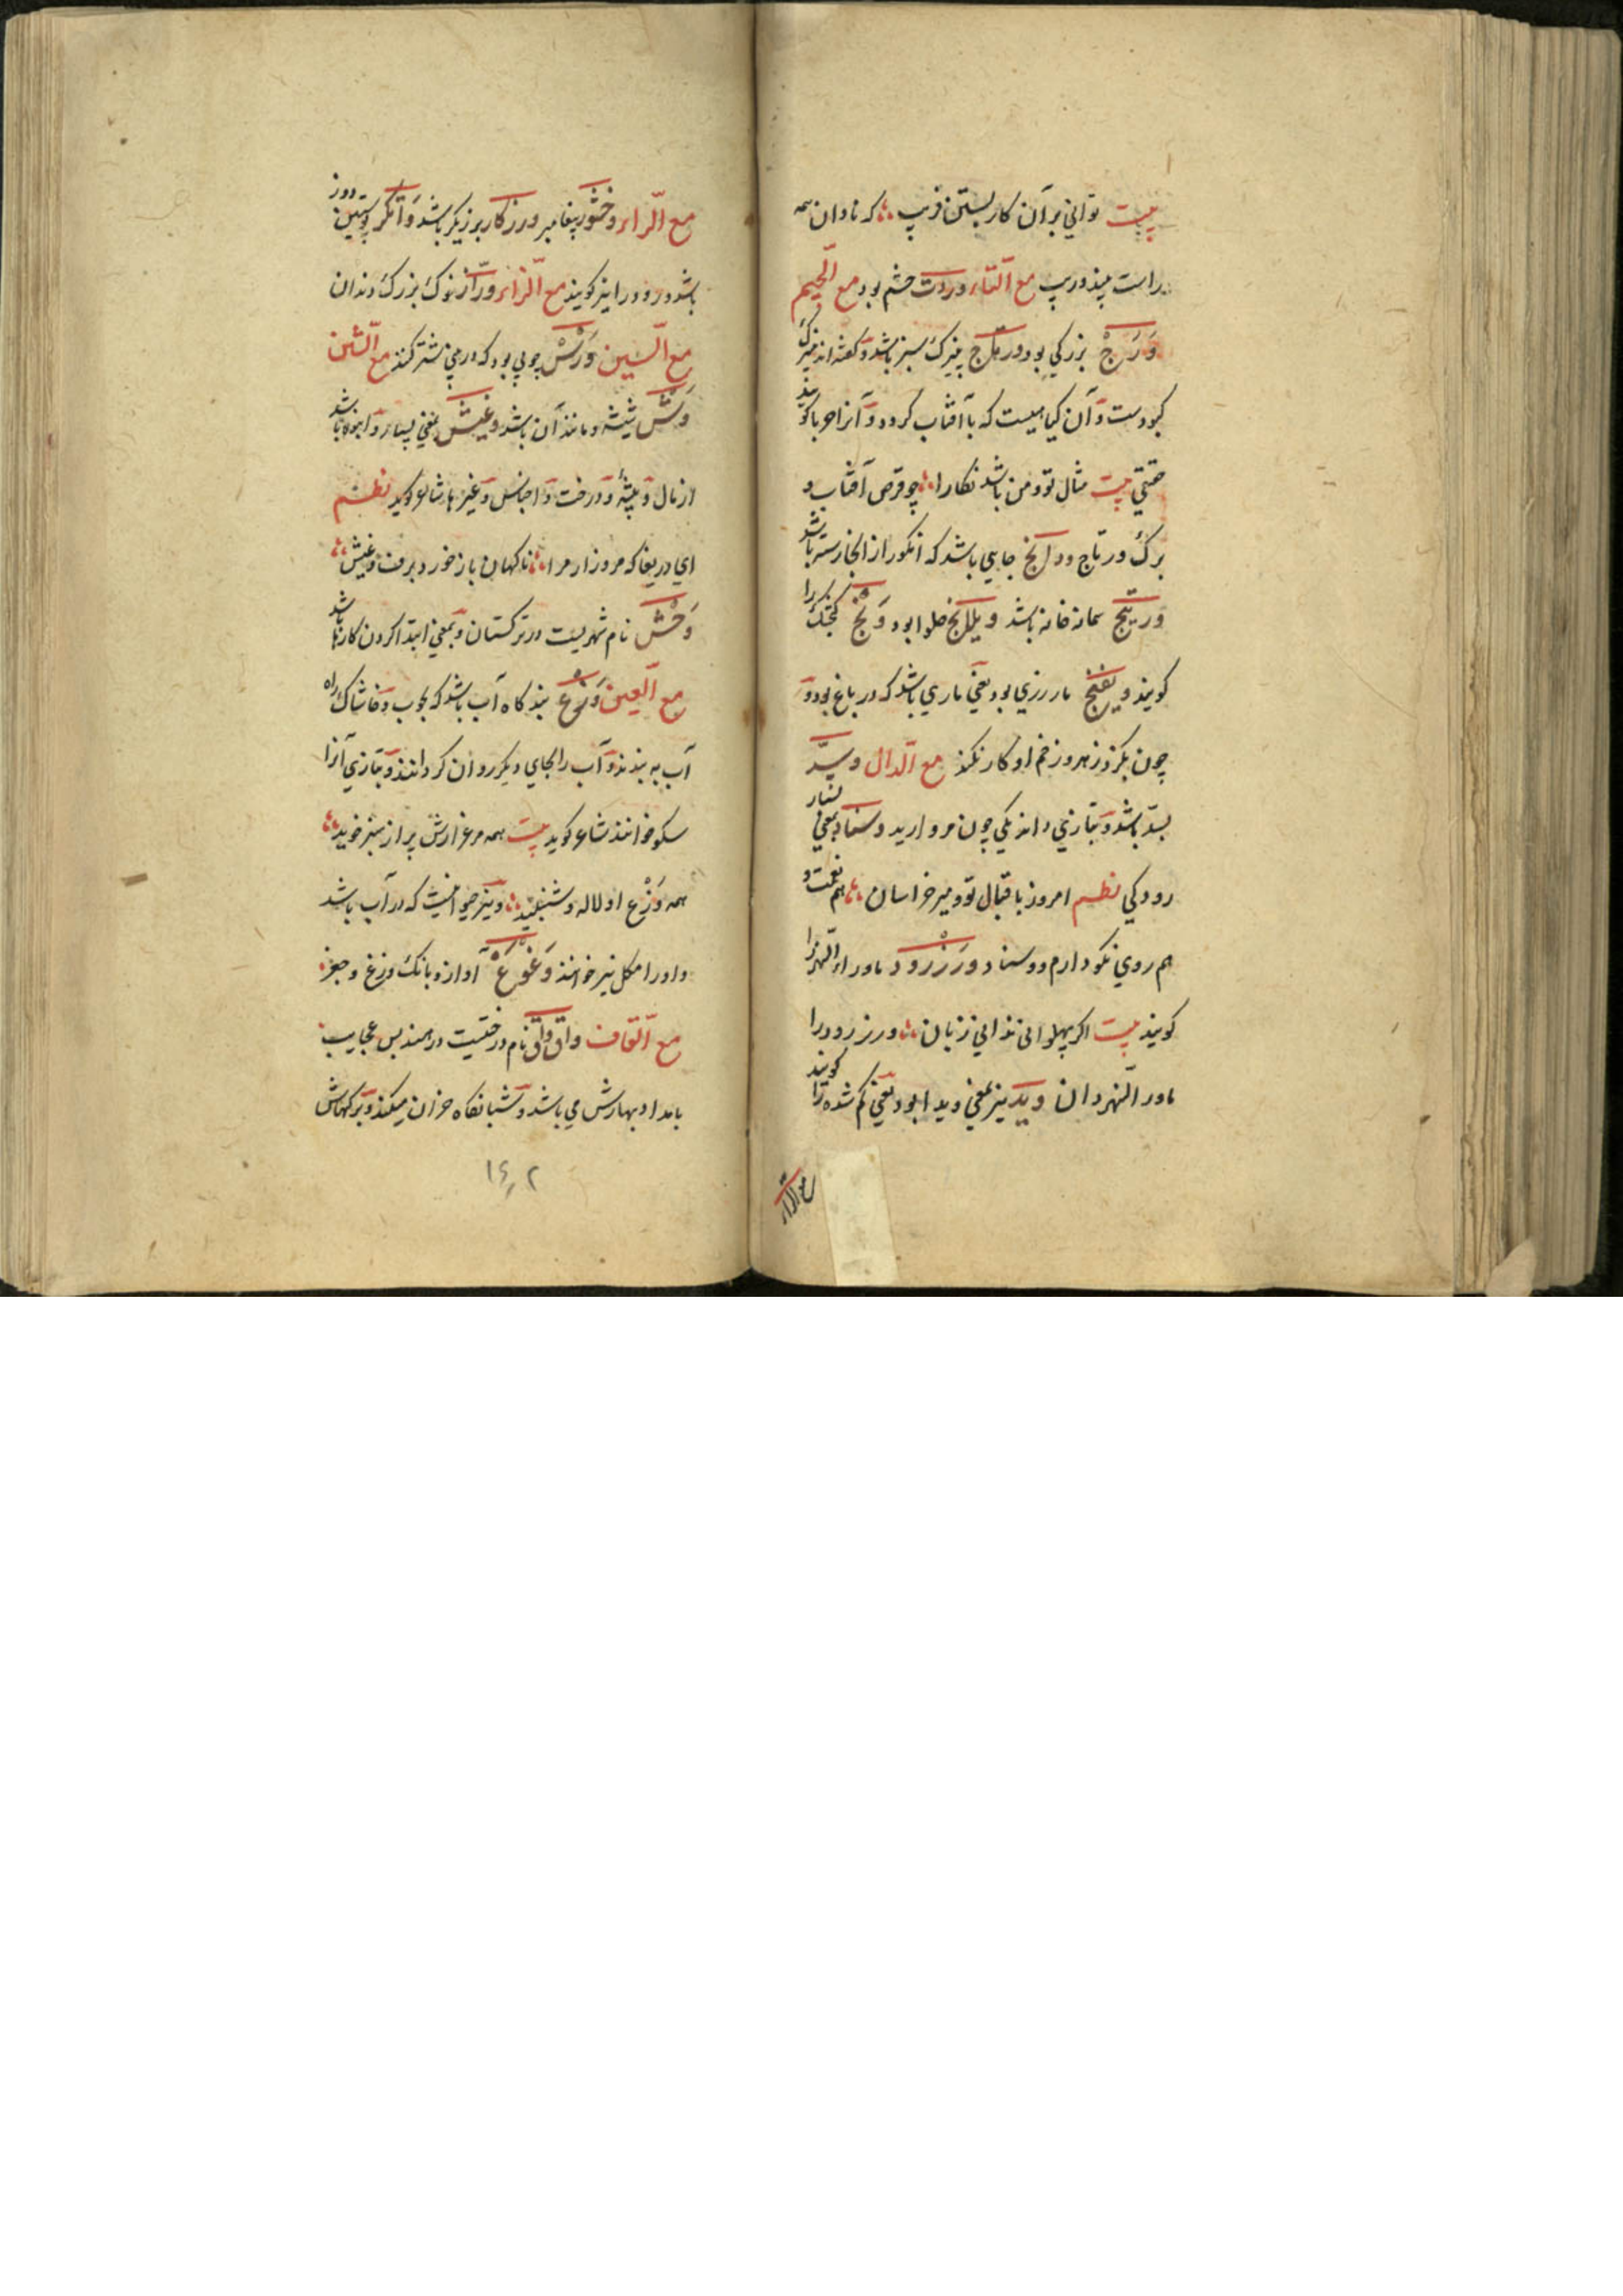 بیت توانی بر آن کار بستن فریب که نادان همه
راست پندوریپ مع التاء وردت خشم بود مع الجیم
وَرَجْ بزرکی بود ورتاج پنیرک سبز باشد و کفته اند
کبودست و آن کیاهیست که با آفتاب کردد و آنرا حربا کویند
حقیقی بیت مثال تو و من باشد نکارا چو قرص آفتاب و
برک ورتاج ووالخ جایی باشد که انکور از انجا رسته باشد
وریتج سمانه خانه باشد ویللنج حلوا بود وَنْج کنجشک را
کویند ویفنج مار رزی بود یعنی ماری باشد که در باغ بود و
چون بکزد زهر و زخم او کار نکند مع الدال وسد
بسد باشد و بتازی دانه یکی چون مروارید وسناد بمعنی بسیار
رودکی نظم امروز باقبال تو و میر خراسان هم نعمت و
هم روی نکو دارم و وسناد وَرَزْرود ماوراء النهر را
کویند بیت اکر پهلوانی ندانی زبان ورز رود را
ماور النهر دان وید نیز بمعنی ویدا بود یعنی کم شده را کویند
مع الراء
مع الراء وخشور پیغامبر ورزکار برزیکر باشد وَاتکر پوستین دوز
باشد و رودرا نیز کویند مع الزاء وراز خوک بزرک دندان
مع السین وَرْسْ چوبی بود که در بینی شتر کنند مع الشین
وَشْ شیشه و مانند آن باشد وغیش بمعنی بسیار و انبوه باشد
از مال و بیشه و درخت و اجناس و غیرها شاعر کوید نظم
ای دریغا که مروزار مرا ناکهان باز خورد برف وغیش
وَخْش نام شهریست در ترکستان و بمعنی ابتدا کردن کارها باشد
مع العین وَرْغ بندکاه آب باشد که بچوب و خاشاک راه
آب به بندند و آب را بجای دیکر روان کردانند و بتازی آنرا
سکو خوانند شاعر کوید بیت همه مرغزارش پر از سبز خوید
همه وَزْع او لاله و شنبلید و نیز حیوانیست که در آب باشد
و اورا مکل نیز خوانند وَغْوغْ آواز و بانک وزغ و جغز
مع القاف واق واق نام درختیست در هند بس عجایب
بامداد بهارش می باشد و شبانکاه خزان میکند و برکهاش
۱٤۲